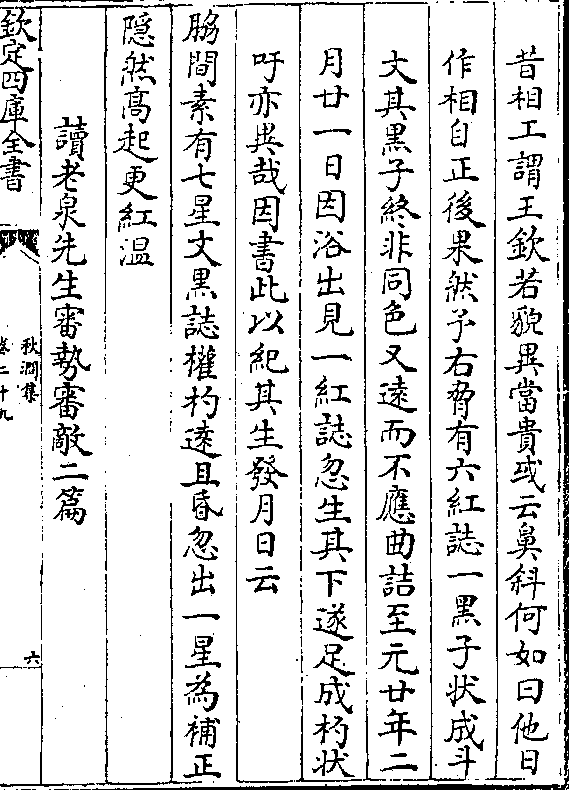 昔相工謂王欽若貌異當貴或云鼻斜何如曰他日
作相自正後果然予右脅有六紅誌一黑子狀成斗
文其黑子終非同色又遠而不應曲詰至元廿年二
月廿一日因浴出見一紅誌忽生其下遂足成杓狀
吁亦異哉因書此以紀其生發月日云
脇間素有七星文黑誌權杓遠且昏忽出一星為補正
隱然高起更紅温
讀老泉先生審勢審敵二篇
欽定四庫全書
秋澗集
卷二十九
六